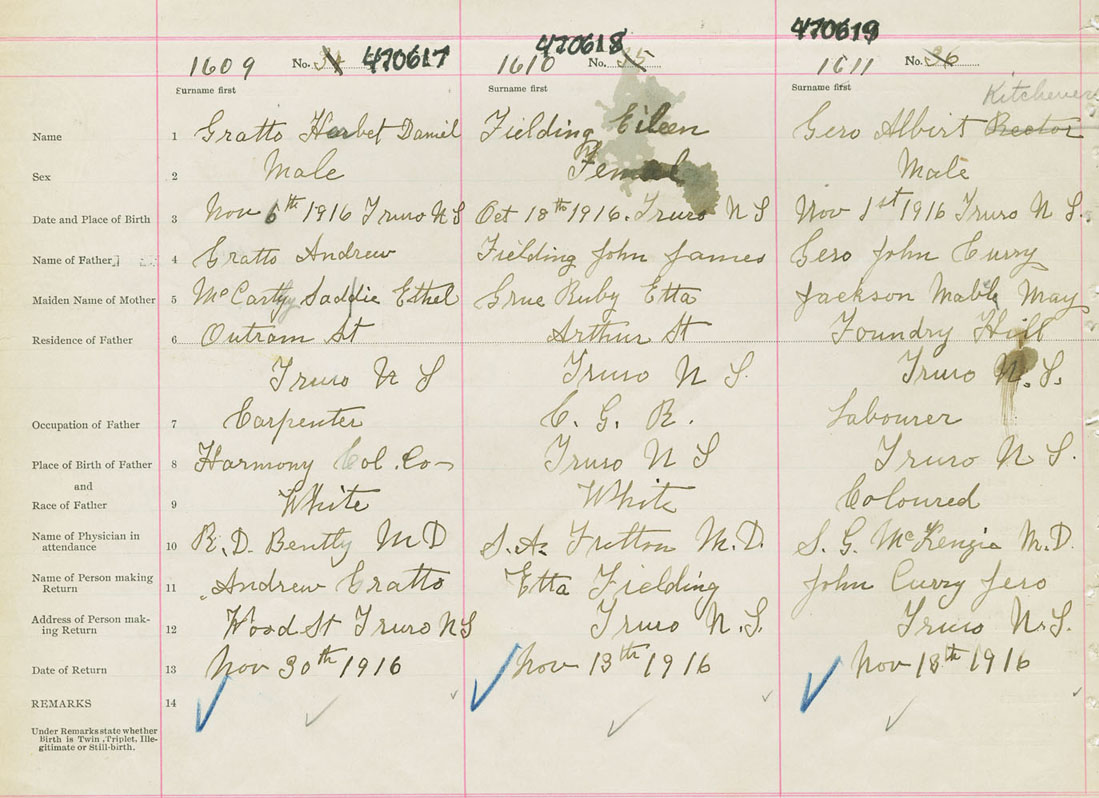 470617 470618 470619
1609 No. 34 1610 No. 35 1611 No. 36
Surname first Surname first Surname first
Kitchener
Name 1 Gratto Herbet Daniel Fielding Eileen Gero Albert Rector
Sex 2 Male Female Male
Date and Place of Birth 3 Nov 6th 1916 Truro N S Oct 18th 1916. Truro N S Nov 1st 1916 Truro N S.
Name of Father 4 Gratto Andrew Fielding John James Gero John Curry
Maiden Name of Mother 5 McCarthy Saddie Ethel Grue Ruby Etta Jackson Mable May
Residence of Father 6 Outram St Arthur St Foundry Hill
Truro N S Truro N S. Truro N. S.
Occupation of Father 7 Carpenter C. G. R. Labourer
Place of Birth of Father 8 Harmony Col. Co Truro N S Truro N S.
and
Race of Father 9 White White Coloured
Name of Physician in
attendance 10 R. D. Bently M D S. A. Fretton M. D. S. G. McKenzie M. D.
Name of Person making
Return 11 Andrew Gratto Etta Fielding John Curry Jero
Address of Person mak-
ing Return 12 Wood St Truro N S Truro N. S. Truro N. S.
Date of Return 13 Nov 30th 1916 Nov 13th 1916 Nov 18th 1916
REMARKS 14
Under Remarks state whether
Birth is Twin, Triplet, Ille-
gitimate or Still-birth.